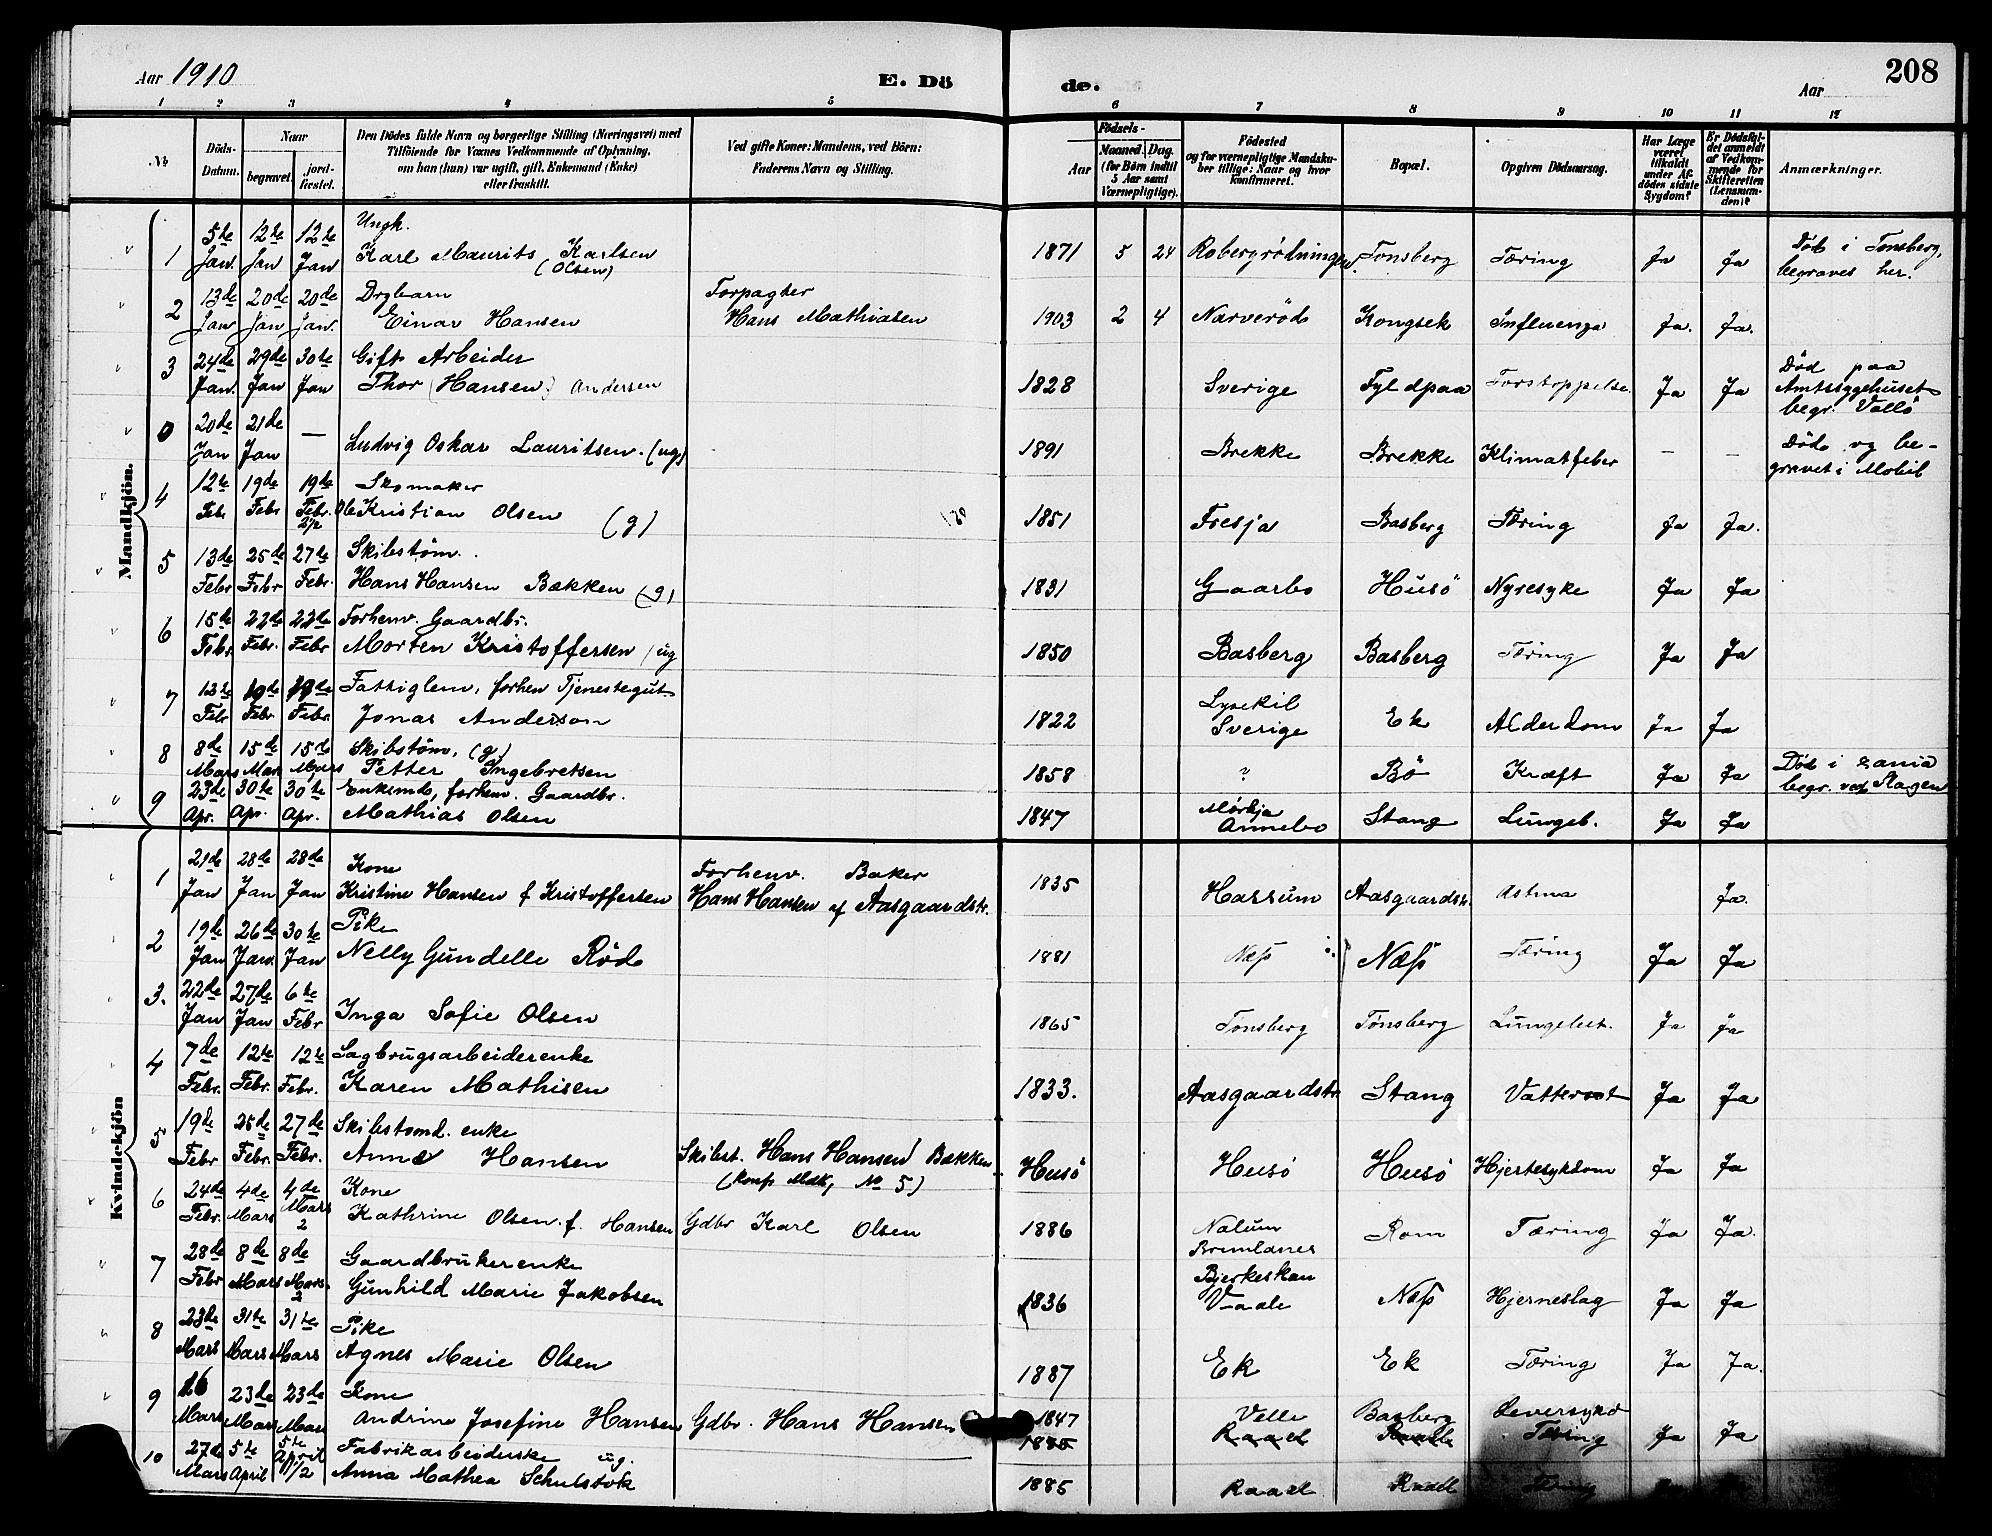 Aar 1910
E. Dö
de.
Aar
208
1 2 3 4 5 6 7 8 9 10 11 12
No
Döds-Datum.
Naar
begravet.
jord-fæstet.
Den Dödes fulde Navn og borgerlige Stilling (Næringsvei) med
Tilföiende for Voxnes Vedkommende af Oplysning,
om han (hun) var ugift, gift, Enkemand (Enke)
eller fraskilt.
Ved gifte Koner: Mandens, ved Börn:
Faderens Navn og Stilling.
Födsels-
Aar
Maaned. Dag.
(for Börn indtil
5 Aar samt
Værnepligtige).
Födested
og for værnepligtige Mandsku-
ber tillige: Naar og hvor
konfirmeret.
Bopæl.
Opgiven Dödsaarsag.
Har Læge
været
tilkaldt
under Af-
dödes sidste
Sygdom?
Er Dödsfal-
det anmeldt
af Vedkom-
mende for
Skifteretten
(Lensman-
den)?
Anmærkninger.
Mandkjön.
1 5te Jan. 12te Jan 12te Jan Ungk.
Karl Maurits Karlsen (Olsen) 1871 5 24 Robergrødningen Tønsberg Tæring Ja Ja Død i Tønsberg, begraves her.
2 13de Jan 20de Jan 20de Jan. Drgbarn
Einar Hansen Forpagter Hans Mathiasen 1903 2 4 Narverød Kongsek Influenza Ja. Ja.
3 24de Jan. 29de Jan 30te Jan Gift Arbeider
Thor (Hansen) Andersen 1828 Sverige Fyldpaa Forstoppelse. Ja Ja Død paa Amtssygehuset begr. Vallö
0 20de Jan 21de Jan — Ludvig Oskar Lauritsen. (ug) 1891 Brekke Brekke Klimatfeber — — Død og be-
gravet i Mobil
4 12te Febr 19de Febr 19de Febr. Skomaker
Ole Kristian Olsen (g) 1851 Fresja Basberg Tæring Ja Ja.
5 13de Febr 25de Febr 27de Febr. Skibstøm.
Hans Hansen Bakken (g) 1831 Gaarbo Husö Nyresyke Ja Ja
6 15de Febr. 22de Febr. 22de Febr Forhenv. Gaardbr.
Morten Kristoffersen (ug 1850 Basberg Basberg Tæring Ja Ja
7 12te Febr 19de Febr. 19de Febr. Fattiglem, forhen Tjenestegut
Jonas Anderson 1822 Lysekil Sverige Ek Alderdom Ja Ja
8 8de Mars 15de Mars 15de Mars Skibstøm, (g)
Petter Ingebretsen 1858 ? Bö Kræft Ja Ja Død i begr. ved Skagen
9 23de Apr. 30te Apr. 30te Apr. Enkemd, forhenv. Gaardbr.
Mathias Olsen 1847 Annebo Stang Lungeb. Ja Ja
Kvindekjön
1 21de Jan 28de Jan 28de Jan Kone
Kristine Hansen f Kristoffersen Forhenv. Baker Hans Hansen af Aasgaardstr. 1835 Hassum Aasgaardstr. Astma Ja.
2 19de Jan 26de Jan. 30te Jan Pike
Nelly Gundelle Röd 1881 Næss Næss Tæring Ja Ja
3. 22de Jan 27de Jan 6te Febr Inga Sofie Olsen 1865 Tønsberg Tønsberg Lungebet. Ja Ja
4 7de Febr. 12te Febr. 12te Febr. Sagbrugsarbeiderenke
Karen Mathisen 1833. Aasgaardstr. Stang Vattersot Ja Ja
5 19de Febr 25de Febr. 27de Febr. Skibstømd. enke
Anne Hansen Skibst. Hans Hansen Bakken (Konf Mdk, No 5) Husö Husö Husö Hjertesykdom Ja Ja
6 24de Febr. 4de Mars 4de Mars 2 Kone
Kathrine Olsen f. Hansen Gdbr Karl Olsen 1886 Nalum Brunlanes Rom Tæring Ja Ja.
7 28de Febr 8de Mars 8de Mars. 2 Gaardbrukerenke
Gunhild Marie Jakobsen 1836 Bjerkeskau Vaale Næss Hjerneslag Ja Ja
8 23de Mars 31te Mars 31te Mars Pike
Agnes Marie Olsen 1887 Ek Ek Tæring Ja Ja.
9 16 Mars 23de Mars 23de Mars Kone
Andrine Josefine Hansen Gdbr. Hans Hansen 1847 Velle Basberg Leversykd
1885 Raael Raael Tæring Ja Ja
10 27de Mars 5te April 5te April 11/2 Fabrikarbeiderske ug.
Anna Mathea Schulstok 1885 Raael Raael Tæring